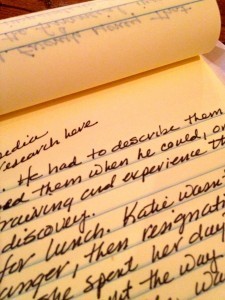 pedia
research here
. He had to describe them
ed them when he could, or
raining and experience th
discovery.
for lunch. Katie wasn't
anger, then resignati
she spent her day
the way